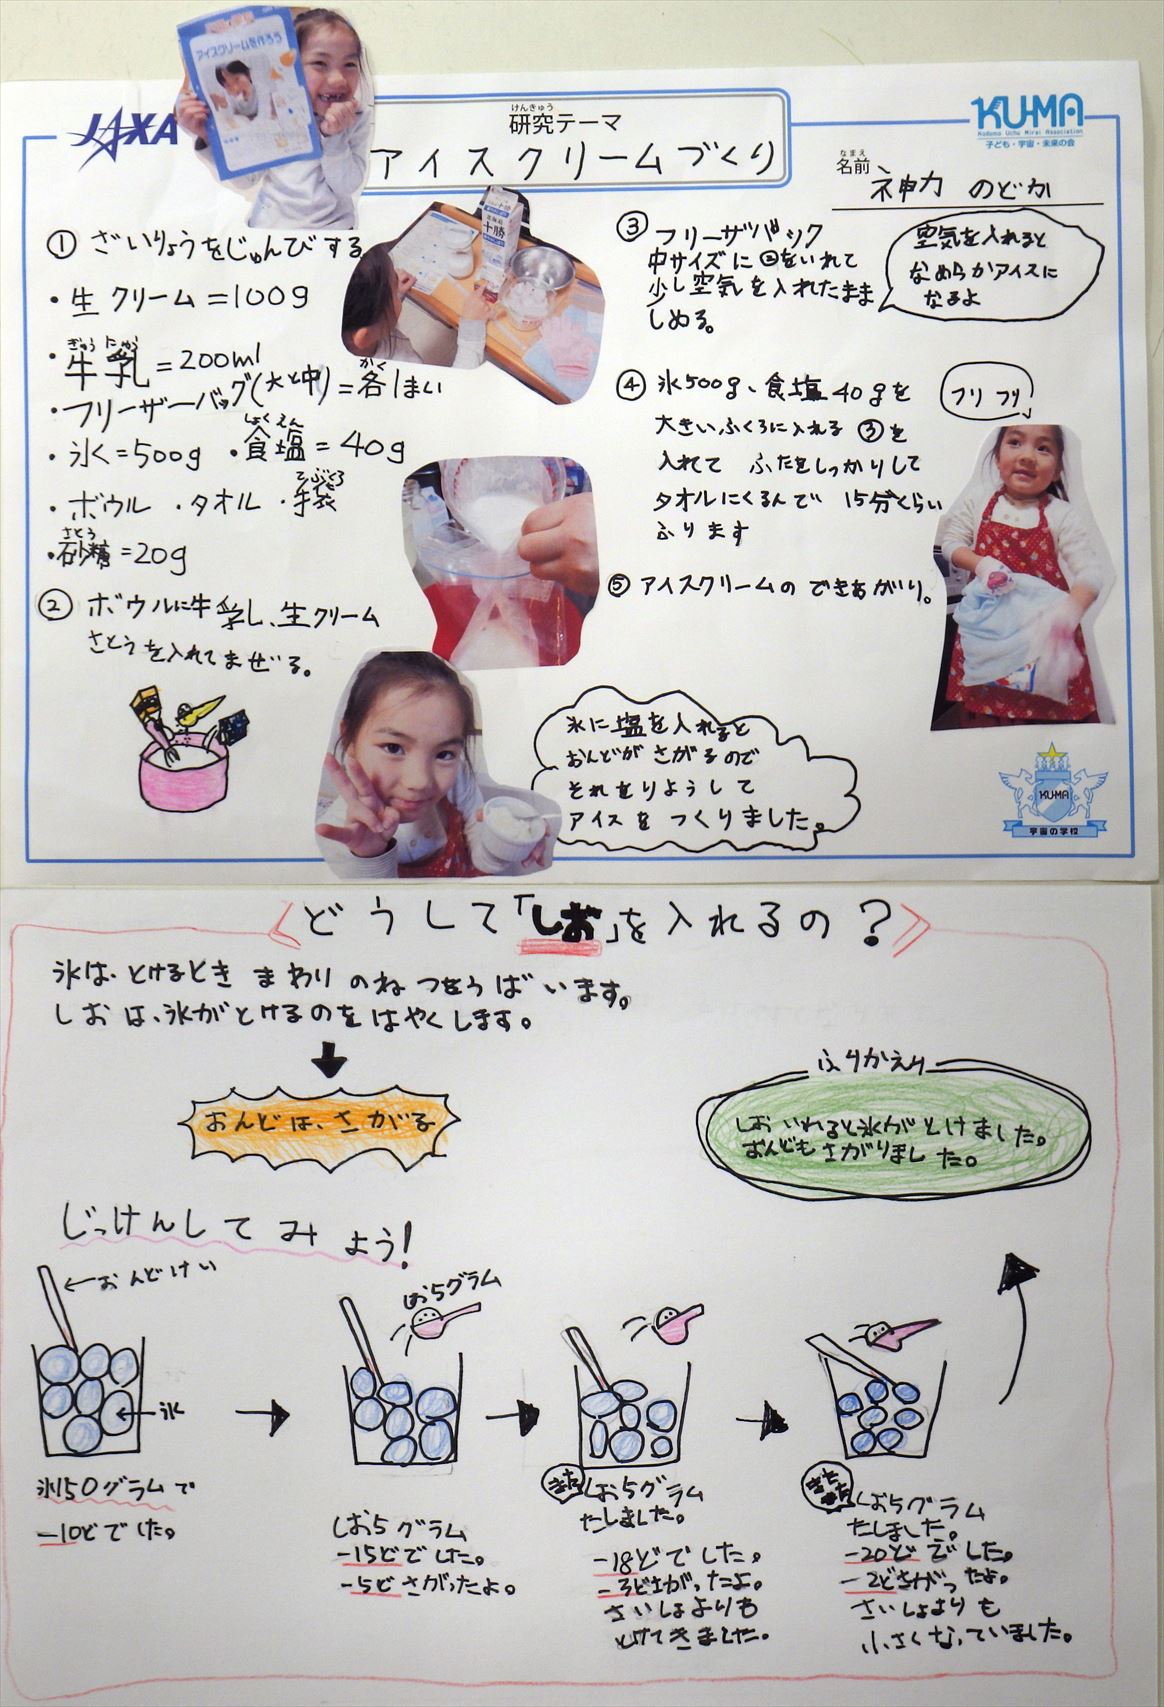 アイスクリームを作ろう
JAXA
けんきゅう
研究テーマ
アイスクリームづくり
KU-MA
Kodomo Uchu Mirai Association
子ども・宇宙・未来の会
なまえ
名前
神力 のどか
① ざいりょうをじゅんびする
・生クリーム=100g
ぎゅうにゅう
・牛乳=200ml
・フリーザーバッグ(大と中)=各1まい
かく
しょくえん
・氷=500g ・食塩=40g
てぶくろ
・ボウル ・タオル ・手袋
さとう
・砂糖=20g
② ボウルに牛乳し、生クリーム
さとうを入れてまぜる。
十勝
③ フリーザバック
中サイズに②をいれて
少し空気を入れたまま
しめる。
空気を入れると
なめらかアイスに
なるよ
④ 氷500g、食塩40gを
大きいふくろに入れる ③を
入れて ふたをしっかりして
タオルにくるんで 15分くらい
ふります
フリフリ
⑤ アイスクリームの できあがり。
氷に塩を入れると
おんどが さがるので
それをりようして
アイスを つくりました。
KU-MA
宇宙の学校
<どうして「しお」を入れるの?>
氷は、とけるとき まわり のねつをうばいます。
しおは、氷がとけるのをはやくします。
おんどは、さがる
ふりかえり
しおいれると氷がとけました。
おんどもさがりました。
じっけんしてみよう!
←おんどけい
←氷
氷50グラムで
-10どでした。
しお5グラム
しお5グラム
-15どでした。
-5どさがったよ。
また
しお5グラム
たしました。
-18どでした。
-3どさがったよ。
さいしょよりも
とけてきました。
またまた
しお5グラム
たしました。
-20どでした。
-2どさがったよ。
さいしょよりも
小さくなっていました。